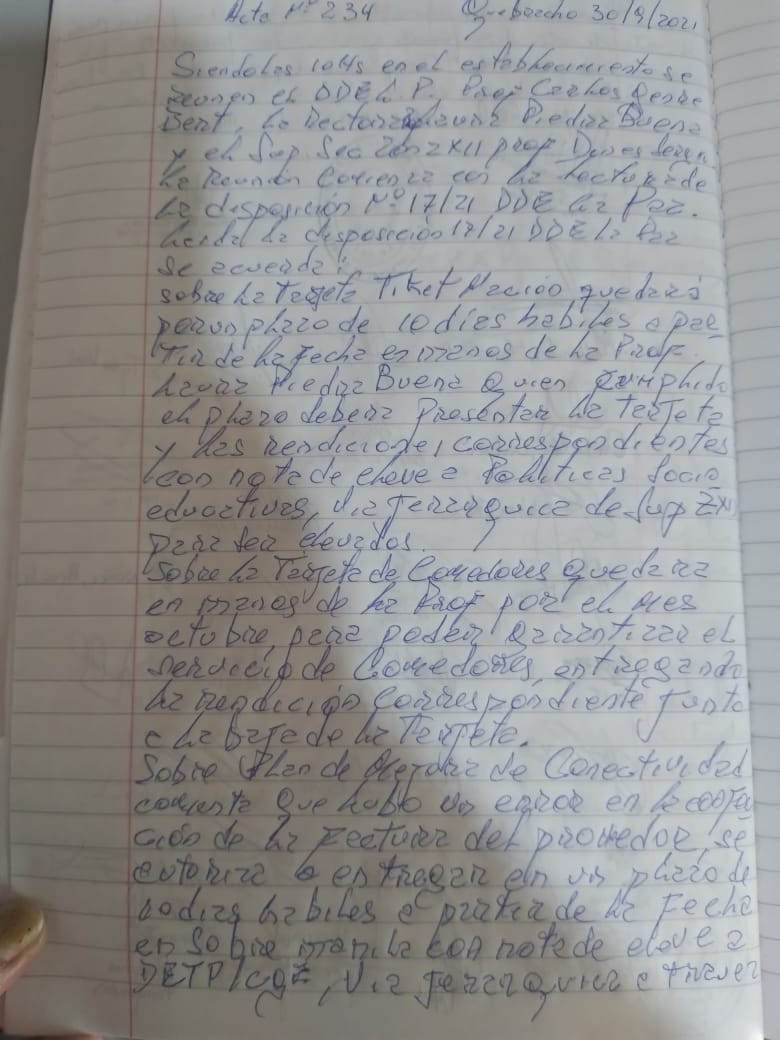 Acta Nº 234 Quebracho 30/9/2021
Siendo las 10Hs en el establecimiento se
reunen el DDE L.P. Prof Carlos
Bent, la Rectora Laura Piedra Buena
y el Sup. Sec Zona XII prof
La Reunión Comienza con la lectura de
la disposición Nº 17/21 DDE La Paz.
Leida la disposición 17/21 DDE La Paz
se acuerda:
sobre La Tarjeta Tiket Nación quedará
por un plazo de 10 dias habiles a par
Tir de la Fecha en manos de la Prof.
Laura Piedra Buena Quien cumplido
el plazo debera Presentar la Tarjeta
y las rendiciones correspondientes
con nota de eleve a Politicas Socio
educativas, via Jerarquica de Sup ZXII
para ser elevados.
Sobre la Tarjeta de Comedores quedara
en manos de la Prof por el mes
octubre, para poder garantizar el
servicio de Comedores, entregando
la rendición Correspondiente junto
a la baja de la Tarjeta.
Sobre Plan de Mejora de Conectividad
comenta Que hubo un error en la confec
ción de la Factura del proveedor, se
autoriza a entregar en un plazo de
10 dias habiles a partir de la Fecha
en sobre manila con nota de eleve a
DETP/CGE, via Jerarquica a traves